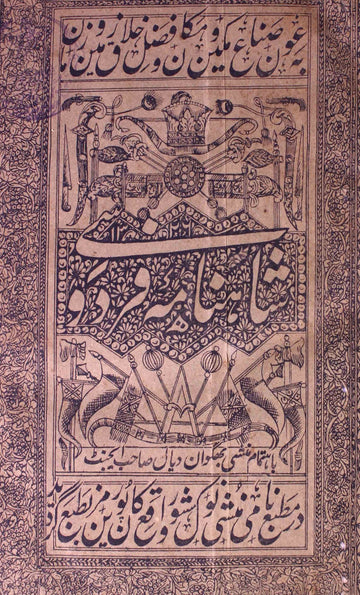 به عون صناع مکین و مکان و فضل خلاق زمین و زمان
شاهنامه فردوسی
باهتمام منشی بھگوان دیال صاحب ایجنٹ
در مطبع نامی منشی نولکشور واقع کانپور مزین بطبع گردید